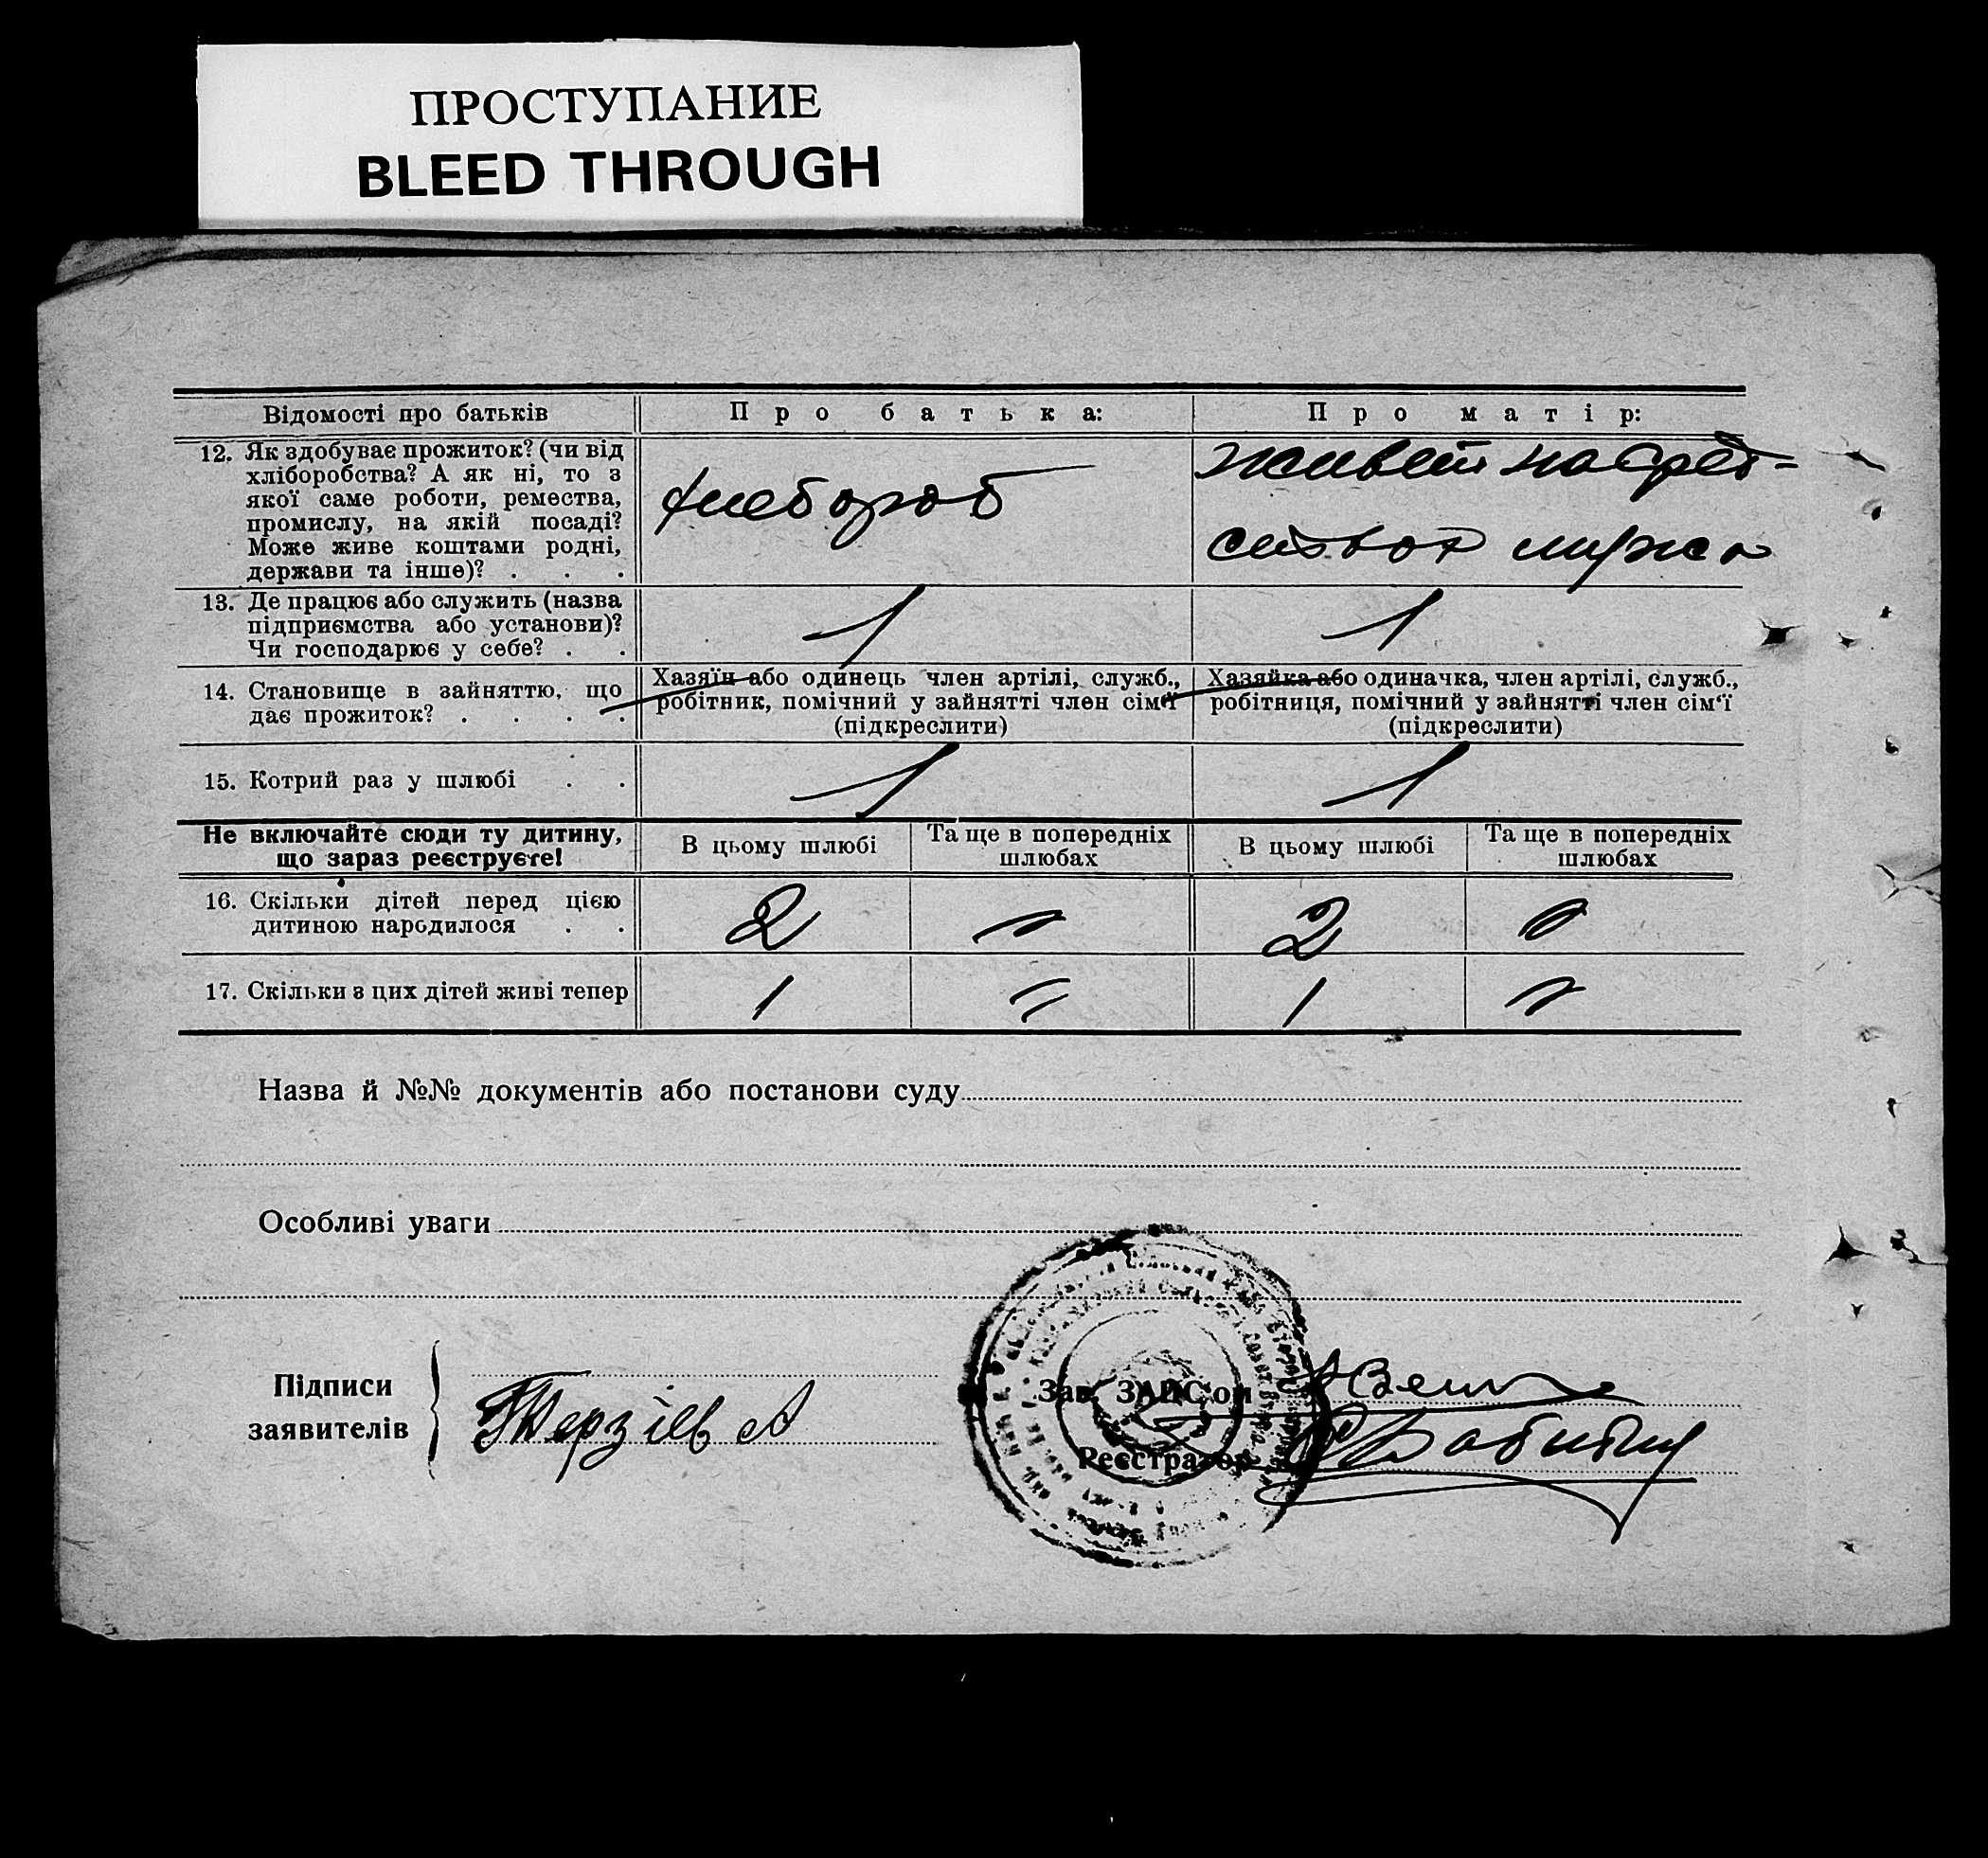 ПРОСТУПАНИЕ
BLEED THROUGH
Відомості про батьків
Про батька:
Про матір:
12. Як здобуває прожиток? (чи від
хліборобства? А як ні, то з
якої саме роботи, ремества,
промислу, на якій посаді?
Може живе коштами родні,
держави та інше)? . . .
хлебороб
живет на сред-
ствах мужа
13. Де працює або служить (назва
підприємства або установи)?
Чи господарює у себе? . .
14. Становище в зайняттю, що
дає прожиток? . . . .
Хазяїн або одинець член артілі, служб.,
робітник, помічний у зайнятті член сім'ї
(підкреслити)
Хазяйка або одиначка, член артілі, служб.,
робітниця, помічний у зайнятті член сім'ї
(підкреслити)
15. Котрий раз у шлюбі . .
1
1
Не включайте сюди ту дитину,
що зараз реєструєте!
В цьому шлюбі
Та ще в попередніх
шлюбах
В цьому шлюбі
Та ще в попередніх
шлюбах
16. Скільки дітей перед цією
дитиною народилося . .
2
2
17. Скільки з цих дітей живі тепер
1
1
Назва й №№ документів або постанови суду
Особливі уваги
Підписи
заявителів
Терзіев А
Зав. ЗАПС'ом
Реєстратор